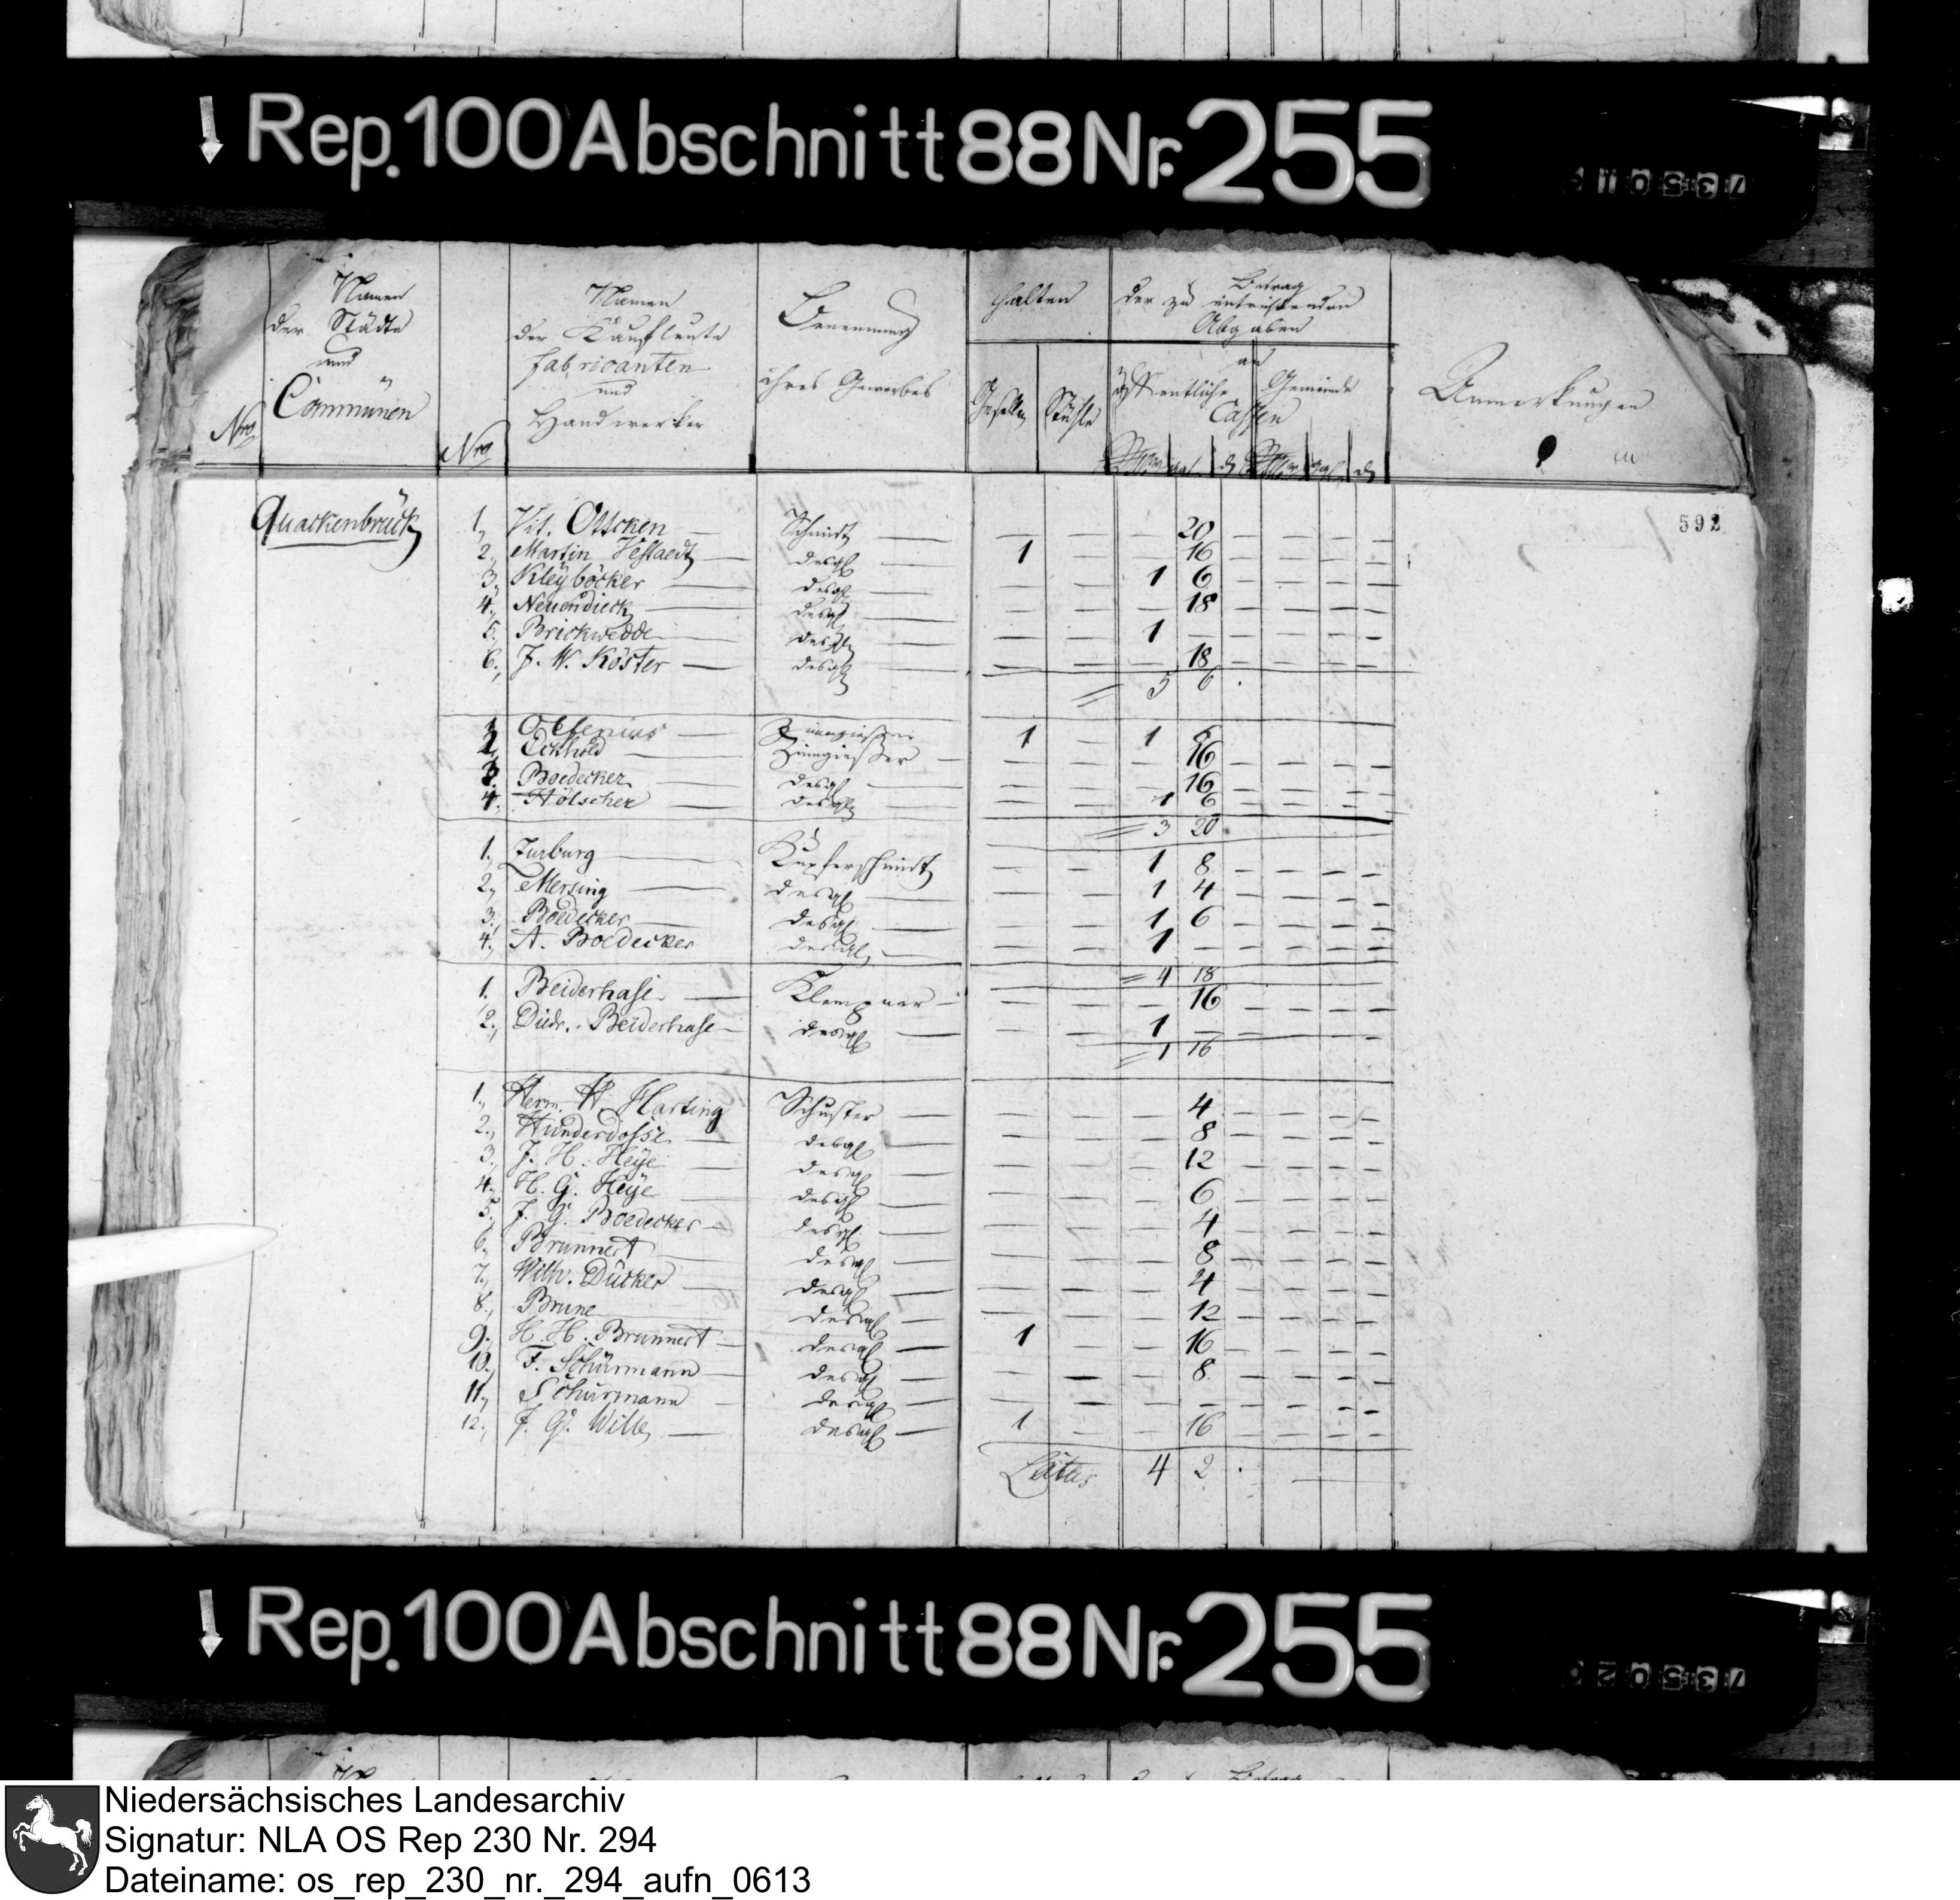 Rep. 100 Abschnitt 88 Nr. 255
Namen der Städte und Communen
Nro
Namen der Kaufleute fabricanten und Handwerker
Benennung ihres Gewerbes
halten
Gesellen Stühle
Betrag der zu entrichtenden Abgaben
an
öffentliche Gemeinde
Cassen
Anmerkungen
592
Quackenbrück
1., Vit. Ottcken — Schmidt — — — — 20 — — — —
2., Martin Vestaedt — desgl — 1 — — 16 — — — —
3., Kleyböcker — desgl — — — 1 6 — — — —
4., Neuendieck — desgl — — — — 18 — — — —
5., Brickwedde — desgl — — — 1 — — — — —
6., J. W. Köster — desgl — — — — 18 — — — —
= 5 6 .
1 Oldenius — Zinngiesser 1 — 1 6
2, Eckhold — Zinngießer — — — — 16 — — — —
3. Boedecker — desgl — — — — 16 — — — —
4., Hölscher — desgl — — — 1 6 — — — —
= 3 20 .
1., Zurburg — Kupferschmidt — — 1 8 — — — —
2., Mersing — desgl — — — 1 4 — — — —
3., Boedecker — desgl — — — 1 6 — — — —
4., A. Boedecker desgl, — — — 1 — — — — —
= 4 18
1. Beiderhase — Klempner — — — — 16 — — — —
2., Diedr. Beiderhase — desgl — — — 1 — — — — —
= 1 16
1., Herm. H. Harting Schuster — — — — 4 — — — —
2., Hunderdosse — desgl — — — — 8 — — — —
3. J. H. Heye — desgl — — — 12 — — — —
4., H. G. Heye — desgl — — — — 6 — — — —
5. J. G. Boedecker — desgl — — — — 4 — — — —
6., Brunnert — desgl — — — — 8 — — — —
7., Wilh. Dücker — desgl — — — — 4 — — — —
8., Brune — desgl — — — — 12 — — — —
9., H. H. Brunnert — desgl — 1 — — 16 — — — —
10., F. Schürmann — desgl — — — — 8. — — — —
11., Schürmann — desgl — — — — — — — — —
12., J. G. Wille — desgl — 1 — — 16 — — — —
Latus 4 2 . —
Rep. 100 Abschnitt 88 Nr. 255
Niedersächsisches Landesarchiv
Signatur: NLA OS Rep 230 Nr. 294
Dateiname: os_rep_230_nr._294_aufn_0613